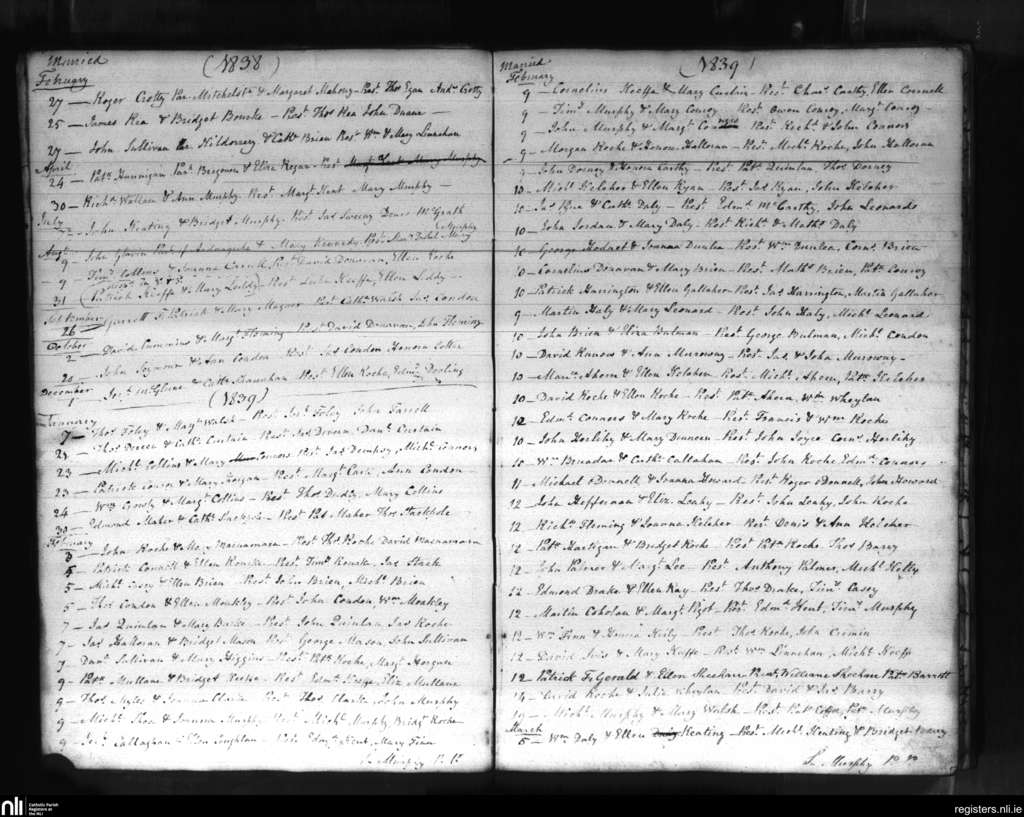 Married (1838)
February
27 - Roger Crotty Par Mitchelstn & Margaret Mahony - Rest Thos Egan Andw Crotty
25 - James Rea & Bridget Bourke - Rest Thos Rea John Duane
27 - John Sullivan Par Kildorrery & Cathe Brien Rest Wm & Mary Linnehan
April
24 - Patk Hannigan & Eliza Regan Rest
30 - Richd Wallace & Ann Murphy Rest Margt Hunt Mary Murphy
July
John Keating & Bridget Murphy Rest Jas Sweeny Denis McGrath
Augt
9 - John Glavin & Mary Kennedy Rest Murphy
9 - Timy Collins & Joanna Carroll Rest David Donovan, Ellen Roche
31 Patrick Keeffe & Mary Leddy - Rest Luke Keeffe, Ellen Leddy
September
26 - Garrett Fitzpatrick & Mary Magner Rest Cathe Walsh Jas Condon
October
2 - David Cummins & Margt Fleming Rest David Donovan, John Fleming
20 John Seymour & Ann Condon Rest Jas Condon Honora
December
1 & Cathe Shanahan Rest Ellen Roche, Edmd Dooling
(1839)
January
7 - Thos Foley & Mary Walsh - Rest Jas Foley John Farrell
21 - Thos Dreen & Cathe Curtain Rest Jas Dreen, Danl Curtain
23 - Michl Collins & Mary Connors Rest Jas Dempsy, Michl Connors
23 - Patrick & Mary Horgan - Rest Margt Ann Condon
24 - Wm Crosby & Margt Collins - Rest Thos Mary Collins
30 - Edmond Maher & Cathe Stackpole - Rest Pat Maher Thos Stackpole
February
3 - John Roche & Mary Macnamara - Rest Thos Roche David Macnamara
5 - Patrick & Ellen Rourke - Rest Timy Rourke, Jas Slack
5 - Michl & Ellen Brien - Rest John Brien, Michl Brien
5 - Thos Condon & Ellen Moakley - Rest John Condon, Wm Moakley
7 - Jas Quinlan & Mary Burke - Rest John Quinlan, Jas Roche
7 - Jas Halloran & Bridget Mason Rest George Mason John Sullivan
7 - Danl Sullivan & Mary Higgins - Rest Patk Roche, Margt Horgan
9 - Patk Mullane & Bridget Roche - Rest Edmd Eliz Mullane
9 - Thos Myles & Joanna - Rest Thos John Murphy
9 - Michl Shea & Joanna Murphy Rest Michl Murphy, Bridgt Roche
9 - Callaghan & Ellen Coughlan - Rest Edmd Hunt, Mary Finn
Murphy P.P.
Married (1839)
February
9 - Cornelius Keeffe & Mary Curtin - Rest Chas Carthy Ellen Connell
9 - Timy Murphy & Mary Conroy Rest Owen Conroy, Margt Conroy
9 - John Murphy & Margt Connors Rest Richd & John Connors
9 - Morgan Roche & Honora Halloran - Rest Michl Roche, John Halloran
9 - John Dorney & Honora Carthy - Rest Patk Quinlan, Thos Dorney
10 - Michl Kelcher & Ellen Ryan - Rest Jas Ryan, John Kelcher
10 - Jas Rea & Cathe Daly - Rest Edmd McCarthy, John Leonards
10 - John Jordan & Mary Daly - Rest Richd & Mathw Daly
10 George Hodnet & Joanna Dunlea Rest Wm Dunlea, Corns Brien
10 - Cornelius Donovan & Mary Brien - Rest Mathw Brien, Patk Conroy
10 - Patrick Harrington & Ellen Gallaher Rest Jas Harrington, Martin Gallaher
9 - Martin Haly & Mary Leonard - Rest John Haly, Michl Leonard
10 - John Brien & Eliza Bulman - Rest George Bulman, Michl Condon
10 - David & Ann - Rest Jas & John
10 - Ahern & Ellen Kelcher Rest Michl Ahern, Patk Kelcher
10 - David Roche & Ellen Roche - Rest Patk Ahern, Wm Wheylan
12 - Edmd Connors & Mary Roche - Rest Francis & Wm Roche
10 - John Herlihy & Mary Dunneen - Rest John Joyce Corns Herlihy
10 - Wm & Cathe Callahan - Rest John Roche Edmd Connors
11 - Michael ODonnell & Joanna Howard Rest Roger ODonnell, John Howard
12 - John Heffernan & Eliz. Leahy - Rest John Leahy, John Roche
12 - Richd Fleming & Joanna Kelcher Rest Denis & Ann Kelcher
12 - Patk Hartigan & Bridget Roche - Rest Patk Roche Thos Barry
12 - John Palmer & Margt Lee - Rest Anthony Palmer, Michl Kelly
12 - Edmond Drake & Ellen Ray - Rest Thos Drake, Timy Casey
12 - Martin Coholan & Margt Pigot - Rest Edmd Hunt, Timy Murphy
12 - Wm Finn & Honora Heily - Rest Thos Roche, John Cremin
12 - David & Mary Keeffe - Rest Wm Linnehan, Michl Keeffe
12 Patrick Fitzgerald & Ellen Sheehan Rest William Sheehan Patk Barrett
14 - David Roche & Julia Wheylan Rest David & Jas Barry
19 - Michl Murphy & Mary Walsh - Rest Patk Murphy
March
5 - Wm Daly & Ellen Keating - Rest Michl Keating & Bridget Barry
Murphy P.P.
nli Catholic Parish Registers at the NLI
registers.nli.ie